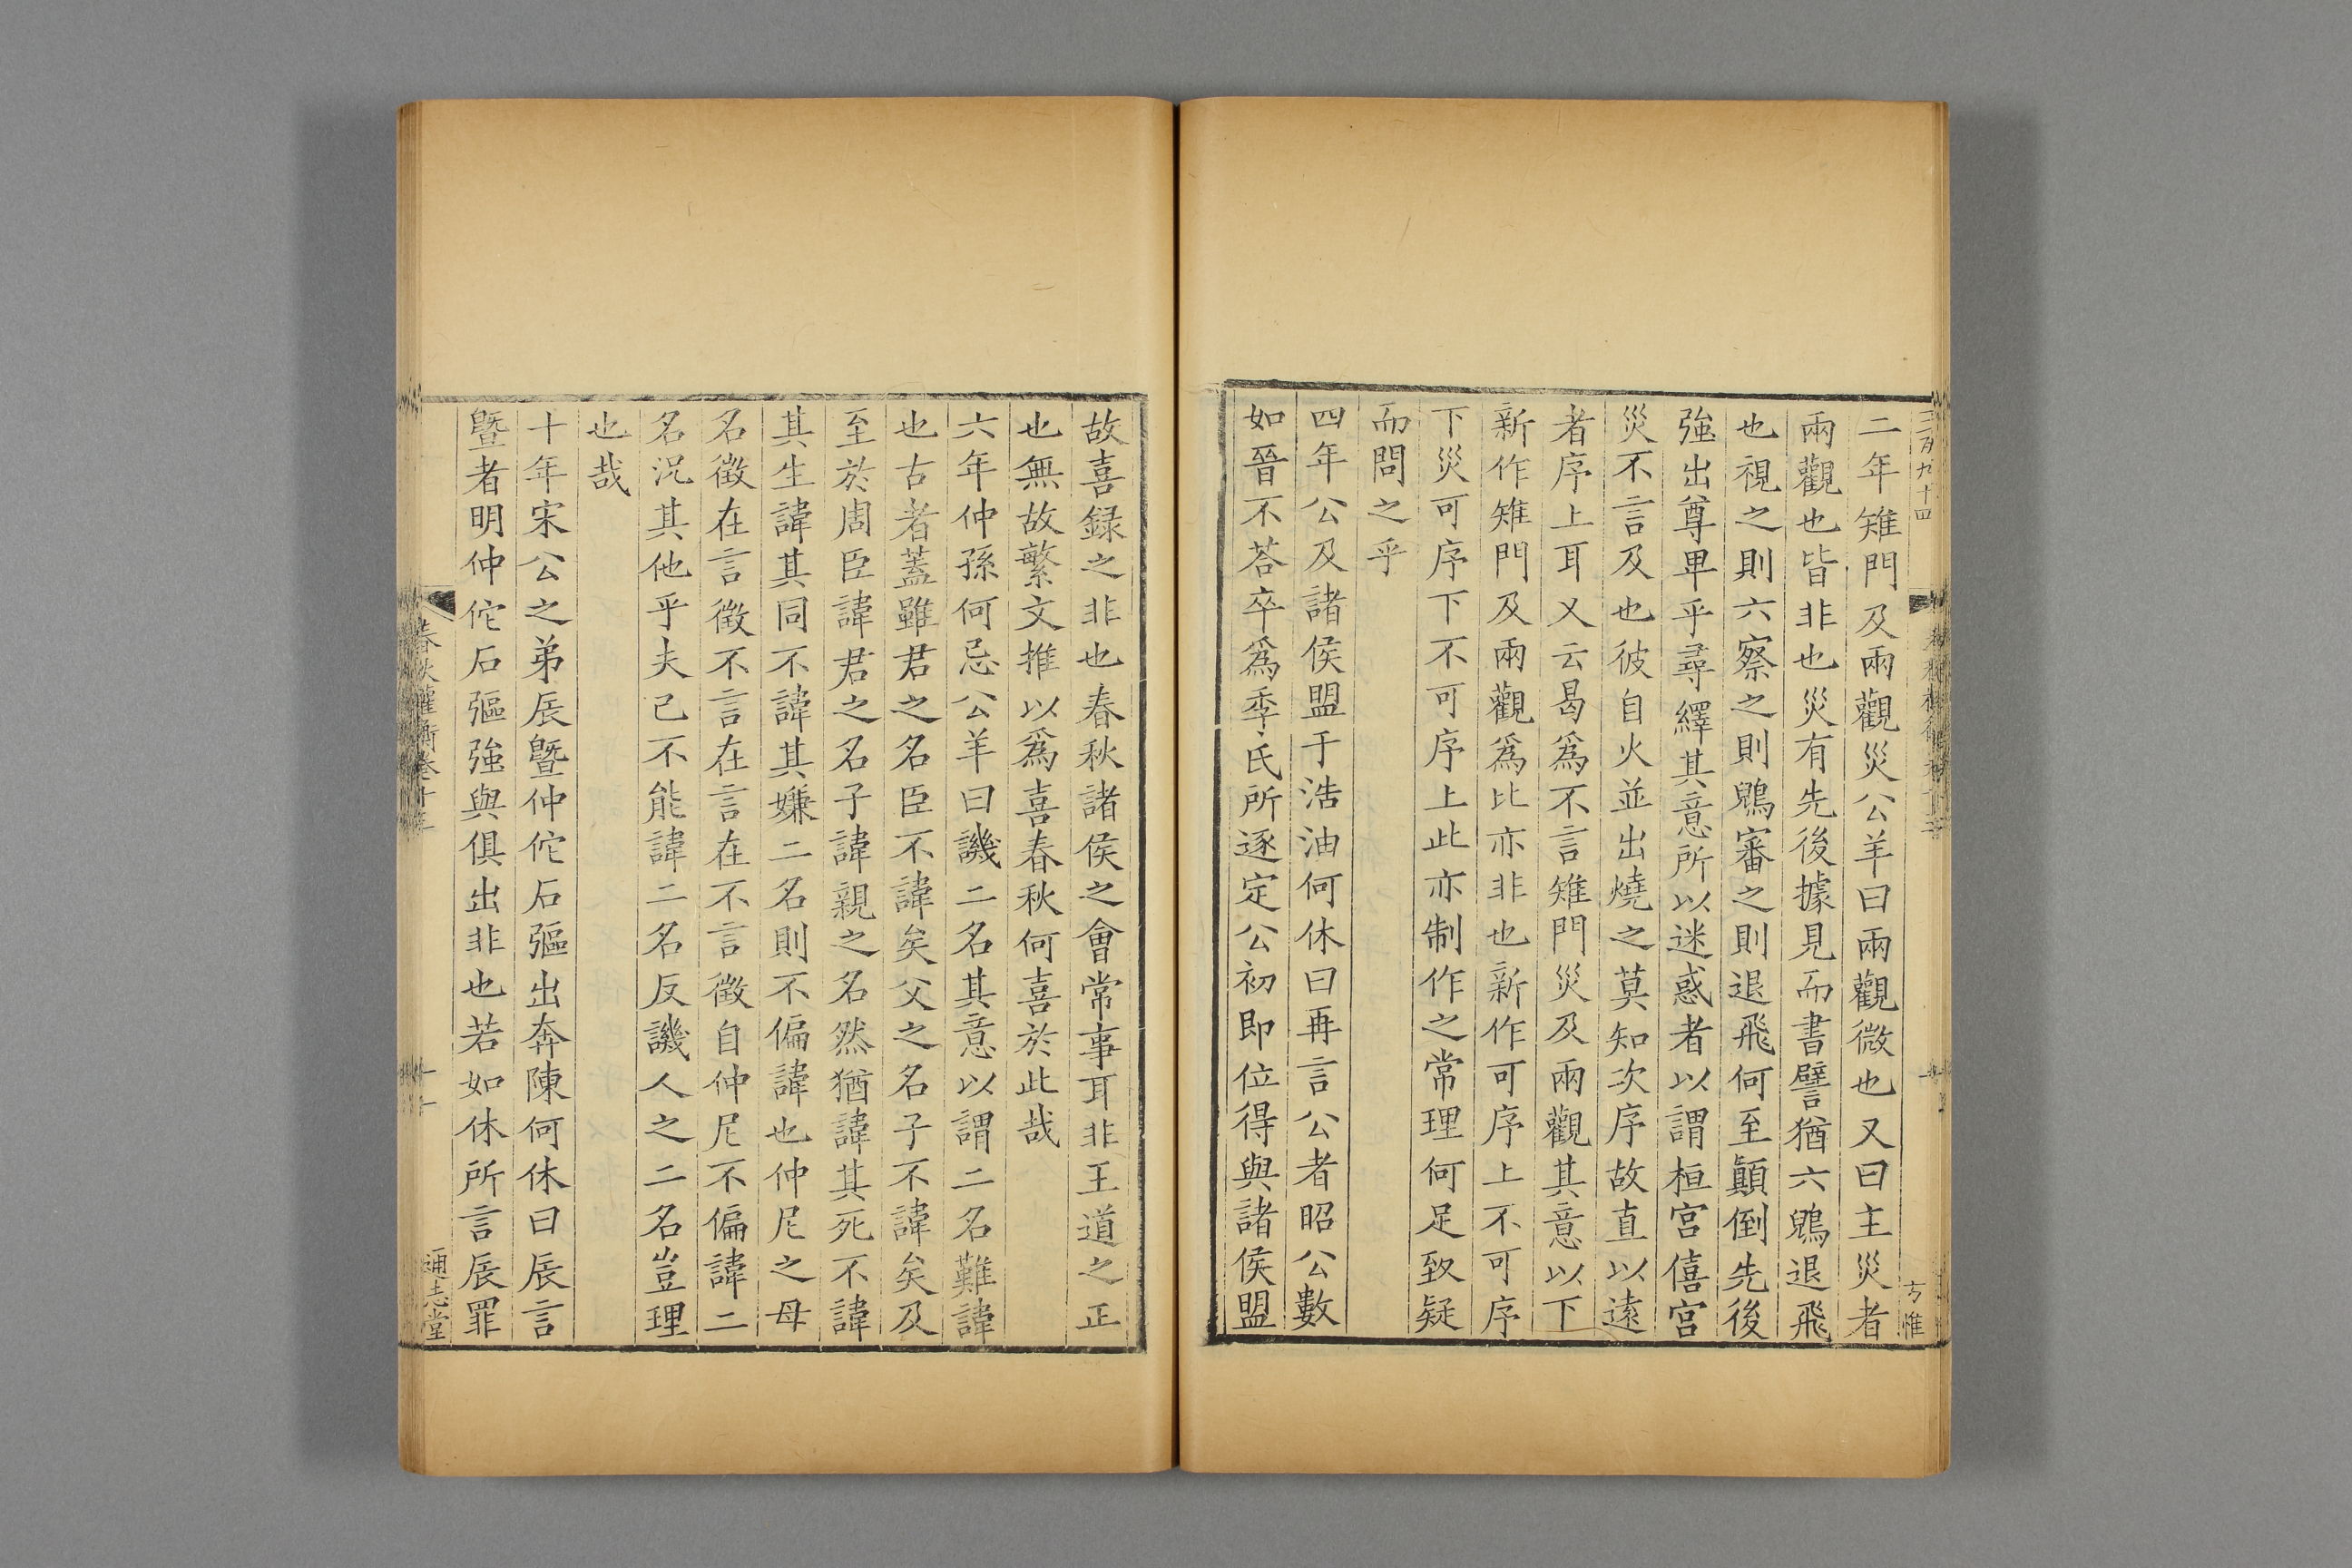 二年雉門及兩觀災公羊曰兩觀微也又曰主災者
兩觀也皆非也災有先後據見而書譬猶六鶂退飛
也視之則六察之則鶂審之則退飛何至顚倒先後
強出尊卑乎尋繹其意所以迷惑者以謂桓宮僖宮
災不言及也彼自火並出燒之莫知次序故直以遠
者序上耳又云曷爲不言雉門災及兩觀其意以下
新作雉門及兩觀爲比亦非也新作可序上不可序
下災可序下不可序上此亦制作之常理何足致疑
而問之乎
四年公及諸侯盟于浩油何休曰再言公者昭公數
如晉不荅卒爲季氏所逐定公初即位得與諸侯盟
故喜録之非也春秋諸侯之會常事耳非王道之正
也無故繁文推以爲喜春秋何喜於此哉
六年仲孫何忌公羊曰譏二名其意以謂二名難諱
也古者蓋雖君之名臣不諱矣父之名子不諱矣及
至於周臣諱君之名子諱親之名然猶諱其死不諱
其生諱其同不諱其嫌二名則不偏諱也仲尼之母
名徵在言徵不言在言在不言徵自仲尼不偏諱二
名況其他乎夫己不能諱二名反譏人之二名豈理
也哉
十年宋公之弟辰暨仲佗石彄出奔陳何休曰辰言
暨者明仲佗石彄強與俱出非也若如休所言辰罪
春秋權衡卷十三
通志堂